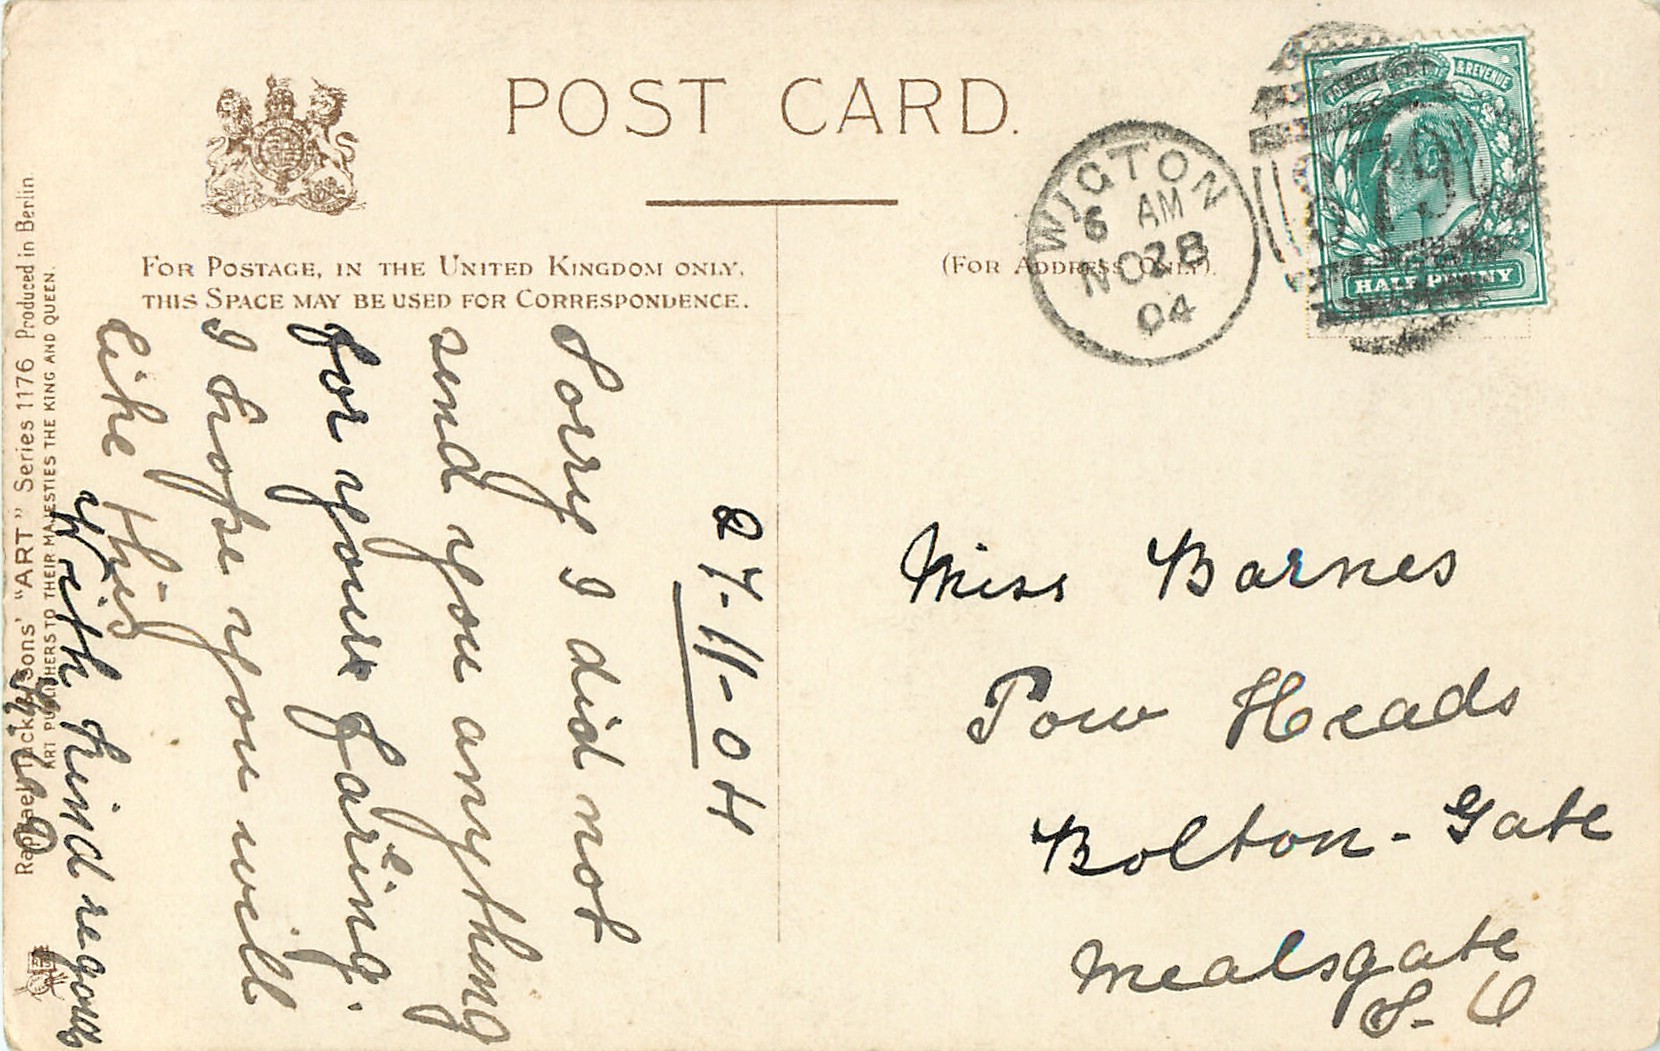 POST CARD.
FOR POSTAGE, IN THE UNITED KINGDOM ONLY,
THIS SPACE MAY BE USED FOR CORRESPONDENCE.
(FOR ADDRESS ONLY).
WIGTON
6 AM
NO 28
04
& REVENUE
HALF PENNY
27-11-04
Sorry I did not
send you anything
for your fairing.
I hope you will
like this
With kind regards
Miss Barnes
Pow Heads
Bolton-Gate
Mealsgate
S.O
Raphael Tuck & Sons' "ART" Series 1176 Produced in Berlin
ART PUBLISHERS TO THEIR MAJESTIES THE KING AND QUEEN.